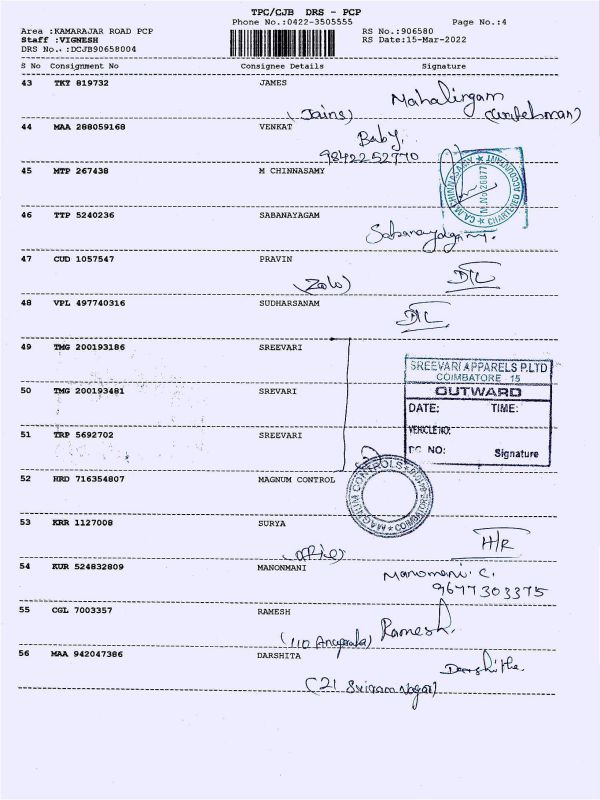 TPC/CJB DRS - PCP
Phone No.:0422-3505555 Page No.:4
Area :KAMARAJAR ROAD PCP RS No.:906580
Staff :VIGNESH RS Date:15-Mar-2022
DRS No.:DCJB90658004
S No Consignment No Consignee Details Signature
43 TKT 819732 JAMES
Mahalingam
(Jains)
44 MAA 288059168 VENKAT
Baby
9842252770
45 MTP 267438 M CHINNASAMY
CA.M.CHINNASAMY ★ CHARTERED ACCOUNTANT ★
M.No.26877
46 TTP 5240236 SABANAYAGAM
Sabanayagam.
47 CUD 1057547 PRAVIN
48 VPL 497740316 SUDHARSANAM
49 TMG 200193186 SREEVARI
SREEVARI APPARELS P.LTD
COIMBATORE 15
50 TMG 200193481 SREVARI
OUTWARD
DATE: TIME:
51 TRP 5692702 SREEVARI
VEHICLE NO:
DC NO: Signature
52 HRD 716354807 MAGNUM CONTROL
MAGNUM CONTROLS ★ COIMBATORE
53 KRR 1127008 SURYA
H/R
54 KUR 524832809 MANONMANI
Manomani. C.
9677303375
55 CGL 7003357 RAMESH
Ramesh.
(110
56 MAA 942047386 DARSHITA
Darshitha.
(21 Sriram Nagar)